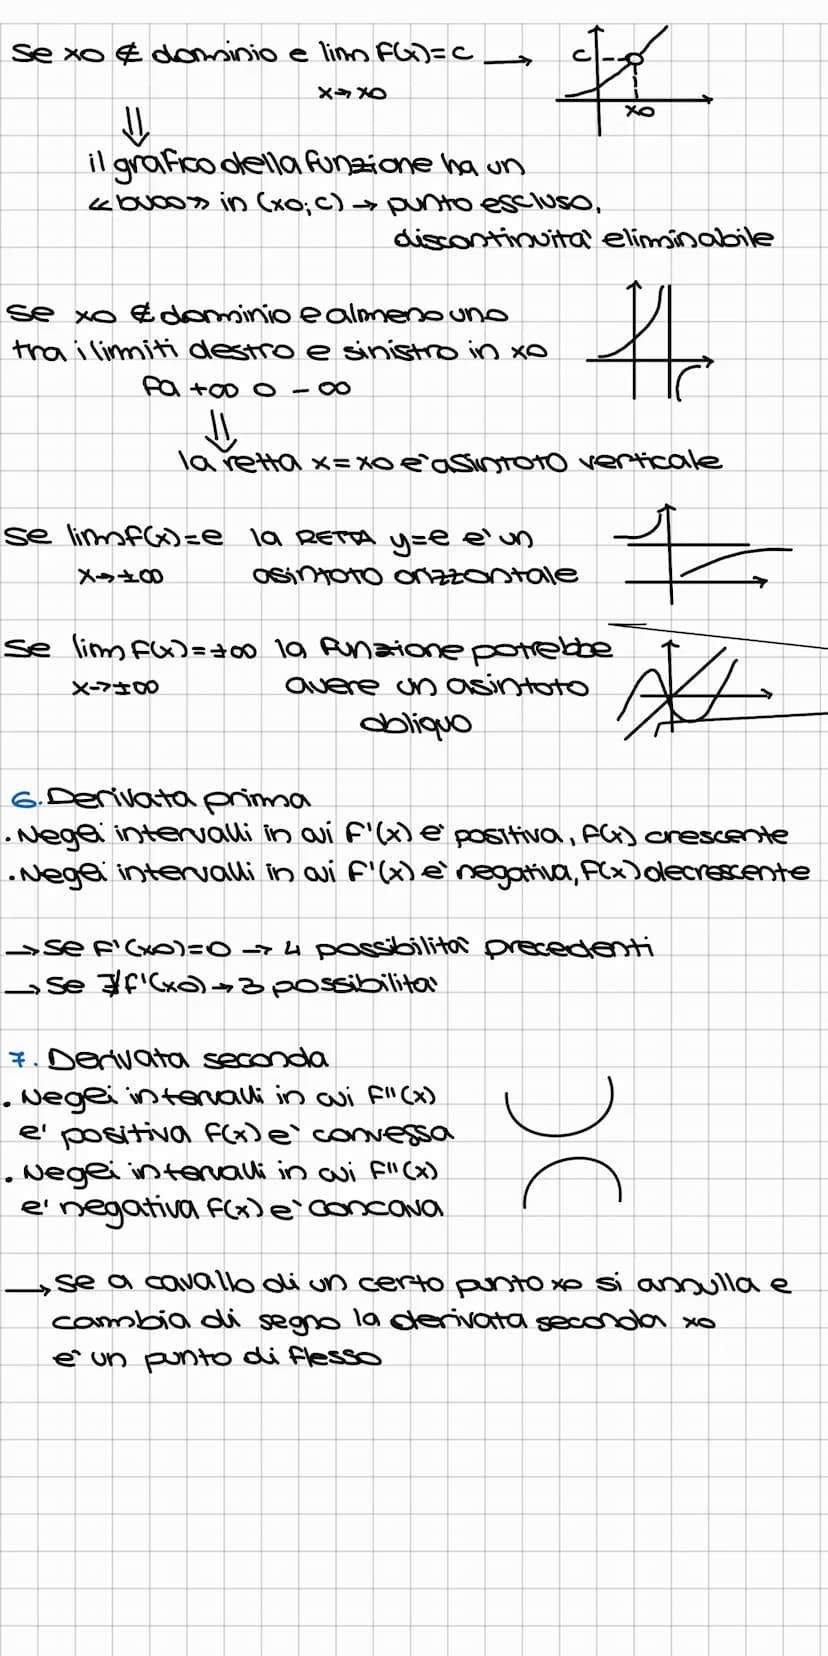 se x0 ∉ dominio e lim f(x)=c →
x→x0
c
x0
⇓
il grafico della funzione ha un
«buco» in (x0;c) → punto escluso,
discontinuita' eliminabile
se x0 ∉ dominio e almeno uno
tra i limiti destro e sinistro in x0
fa +∞ o -∞
⇓
la retta x=x0 e' asintoto verticale
se lim f(x)=e la RETTA y=e e' un
x→±∞ asintoto orizzontale
se lim f(x)=±∞ la funzione potrebbe
x→±∞ avere un asintoto
obliquo
6. Derivata prima
. Negli intervalli in cui f'(x) e' positiva, f(x) crescente
. Negli intervalli in cui f'(x) e' negativa, f(x) decrescente
→ se f'(x0)=0 → 4 possibilita' precedenti
→ se ∄ f'(x0) → 3 possibilita'
7. Derivata seconda
. Negli intervalli in cui f''(x)
e' positiva f(x) e' convessa
. Negli intervalli in cui f''(x)
e' negativa f(x) e' concava
→ se a cavallo di un certo punto x0 si annulla e
cambia di segno la derivata seconda x0
e' un punto di flesso